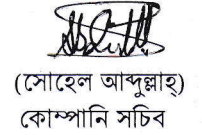 (সোহেল আব্দুল্লাহ্)
কোম্পানি সচিব